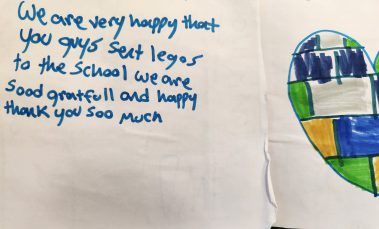 We are very happy that
you guys sent legos
to the School we are
sood gratfull and happy
thank you soo much